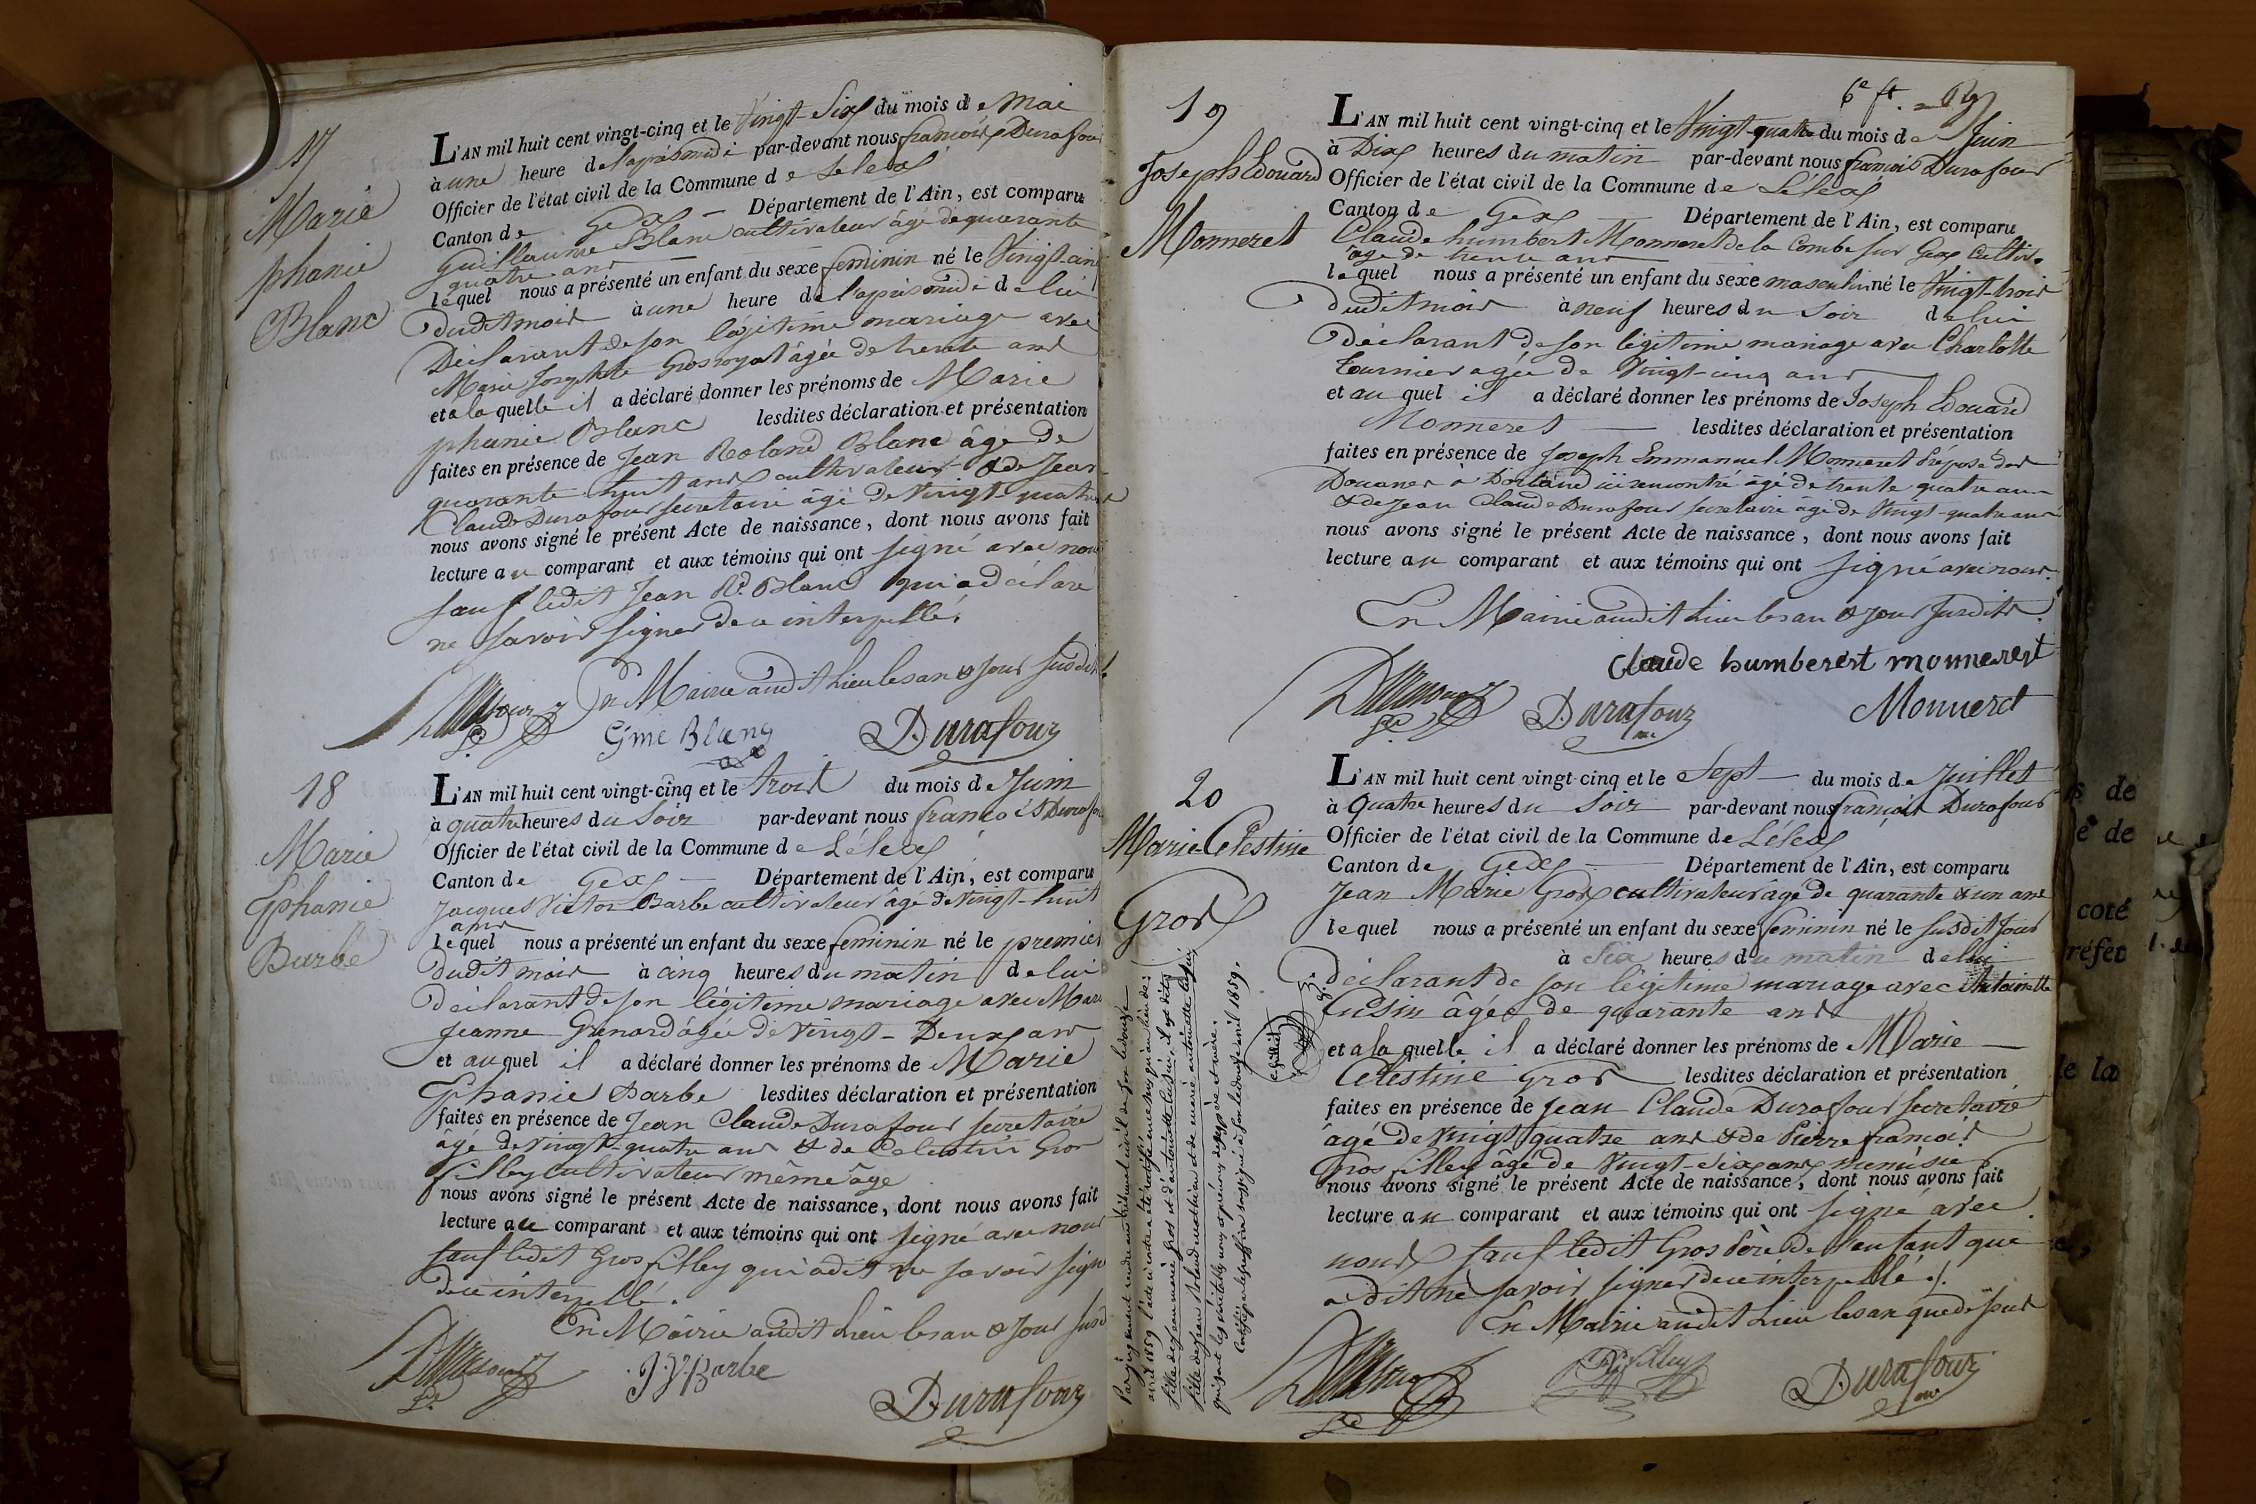 17
Marie
phanie
Blanc
L'AN mil huit cent vingt-cinq et le Vingt-Six du mois de Mai
à une heure de l'après midi par-devant nous françois Durafour
Officier de l'état civil de la Commune de Lelex
Canton de Gex — Département de l'Ain, est comparu
Guillaume Blanc cultivateur âgé de quarante
quatre ans
lequel nous a présenté un enfant du sexe feminin né le Vingt-cinq
dudit mois à une heure de l'après midi de lui
Déclarant de son légitime mariage avec
Marie Josephte Grosroyat âgée de trente ans
et a la quelle il a déclaré donner les prénoms de Marie
phanie Blanc lesdites déclaration et présentation
faites en présence de Jean Roland Blanc âgé de
quarante huit ans cultivateur & de Jean
Claude Durafour secretaire âgé de Vingt-quatre
nous avons signé le présent Acte de naissance, dont nous avons fait
lecture au comparant et aux témoins qui ont signé avec nous
sauf ledit Jean Rd. Blanc qui a déclaré
ne savoir signer de ce interpellé.
En Mairie audit Lieu les an & jour susdits.
Gme Blanc
Durafour
18
Marie
Ephanie
Barbe
L'AN mil huit cent vingt-cinq et le trois du mois de Juin
à quatre heures du Soir par-devant nous françois Durafour
Officier de l'état civil de la Commune de Lélex
Canton de Gex — Département de l'Ain, est comparu
Jacques Victor Barbe cultivateur âgé de Vingt-huit
ans
lequel nous a présenté un enfant du sexe feminin né le premier
dudit mois à cinq heures du matin de lui
Déclarant de son légitime mariage avec Marie
Jeanne Grenard âgée de Vingt-Deux ans
et au quel il a déclaré donner les prénoms de Marie
Ephanie Barbe lesdites déclaration et présentation
faites en présence de Jean Claude Durafour secretaire
âgé de Vingt-quatre ans & de Celestin Gros
filley cultivateur même âge
nous avons signé le présent Acte de naissance, dont nous avons fait
lecture au comparant et aux témoins qui ont signé avec nous
sauf ledit Gros filley qui a dit ne savoir signer
de ce interpellé.
En Mairie audit Lieu les an & jour susd
J. Vr Barbe
Durafour
19
Joseph Edouard
Monneret
L'AN mil huit cent vingt-cinq et le Vingt-quatre du mois de Juin
à Dix heures du matin par-devant nous françois Durafour
Officier de l'état civil de la Commune de Lélex
Canton de Gex — Département de l'Ain, est comparu
Claude humbert Monneret de la Combe sur Gex cultiv.
âgé de trente ans
lequel nous a présenté un enfant du sexe masculin né le Vingt-trois
dudit mois à neuf heures du Soir de lui
déclarant de son légitime mariage avec Charlotte
Tournier agée de Vingt-cinq ans
et au quel il a déclaré donner les prénoms de Joseph Edouard
Monneret — lesdites déclaration et présentation
faites en présence de Joseph Emmanuel Monneret Préposé des
Douanes à ici rencontré âgé de trente quatre ans
& de Jean Claude Durafour secretaire âgé de Vingt-quatre ans
nous avons signé le présent Acte de naissance, dont nous avons fait
lecture au comparant et aux témoins qui ont signé avec nous.
En Mairie audit Lieu les an & jour susdits.
Claude humberert monnerert
Durafour
Monneret
20
Marie Célestine
Gros
L'AN mil huit cent vingt-cinq et le Sept — du mois de Juillet
à Quatre heures du Soir par-devant nous françois Durafour
Officier de l'état civil de la Commune de Lélex
Canton de Gex — Département de l'Ain, est comparu
Jean Marie Gros cultivateur agé de quarante & un ans
lequel nous a présenté un enfant du sexe feminin né le susdit Jour
à Six heures du matin de lui
déclarant de son légitime mariage avec Antoinette
Cusin âgée de quarante ans
et a la quelle il a déclaré donner les prénoms de Marie —
Celestine Gros lesdites déclaration et présentation
faites en présence de Jean Claude Durafour secretaire
âgé de Vingt quatre ans & de Pierre françois
Gros filley âgé de Vingt-Six ans menuisier
nous avons signé le présent Acte de naissance, dont nous avons fait
lecture au comparant et aux témoins qui ont signé avec
nous sauf ledit Gros Père de l'enfant que
a dit ne savoir signer de ce interpellé.
En Mairie audit Lieu les an que dessus
Durafour
Par jugement rendu au tribunal civil de Gex le douze
avril 1859 l'acte ci contre a été rectifié en ce sens qu'au lieu de:
fille de Jean marie gros et d'antoinette Cusin, il est dit:
qui sont les véritables noms et prénoms des père et mère.